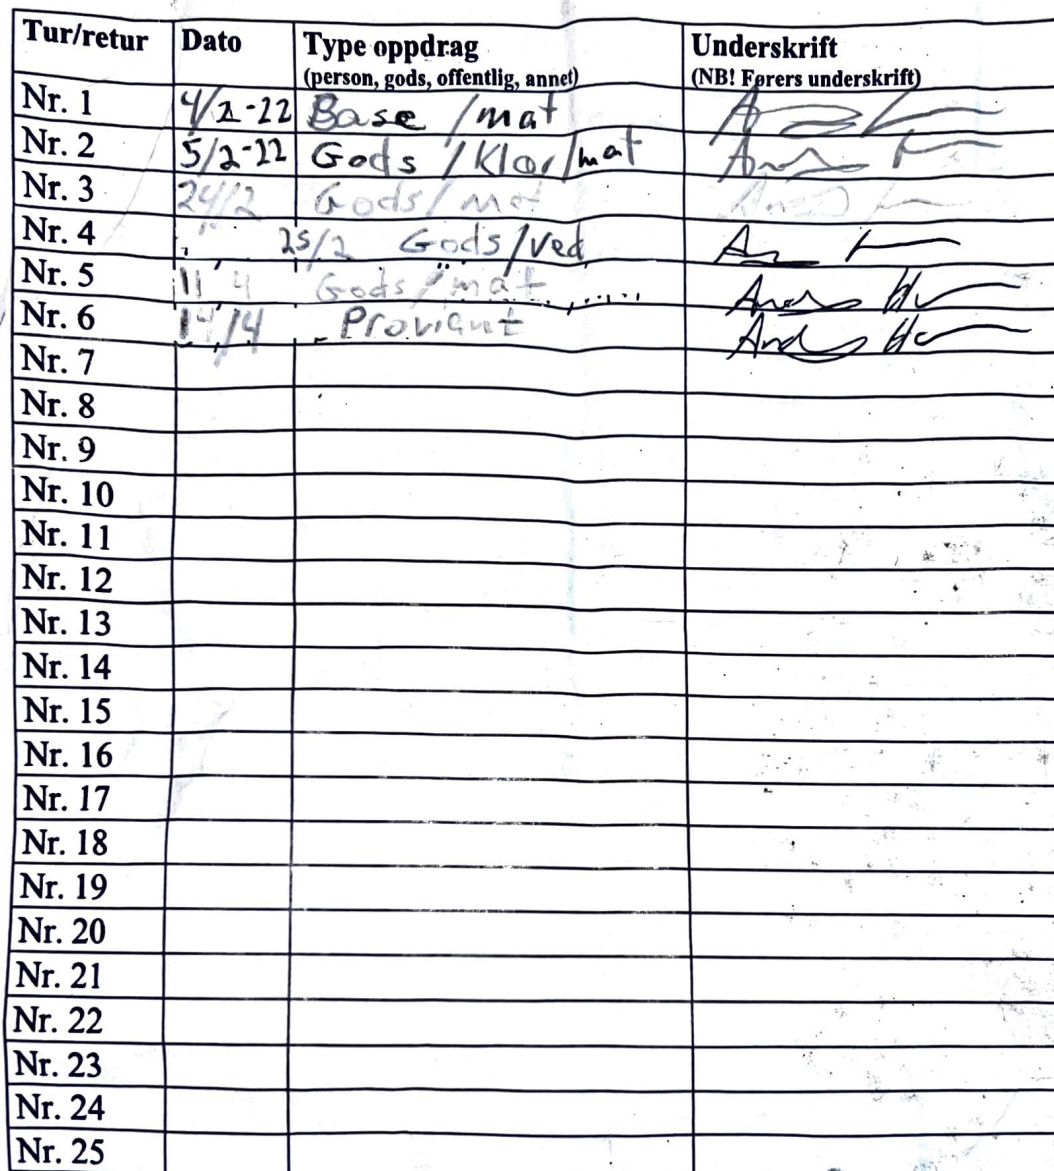 Tur/retur Dato Type oppdrag Underskrift
(person, gods, offentlig, annet) (NB! Førers underskrift)
Nr. 1 4/2-22 Base /mat
Nr. 2 5/2-22 Gods /Klær/mat
Nr. 3 24/2 Gods/mat
Nr. 4 25/2 Gods/ved
Nr. 5 11 4 Gods/mat
Nr. 6 14/4 Proviant
Nr. 7
Nr. 8
Nr. 9
Nr. 10
Nr. 11
Nr. 12
Nr. 13
Nr. 14
Nr. 15
Nr. 16
Nr. 17
Nr. 18
Nr. 19
Nr. 20
Nr. 21
Nr. 22
Nr. 23
Nr. 24
Nr. 25